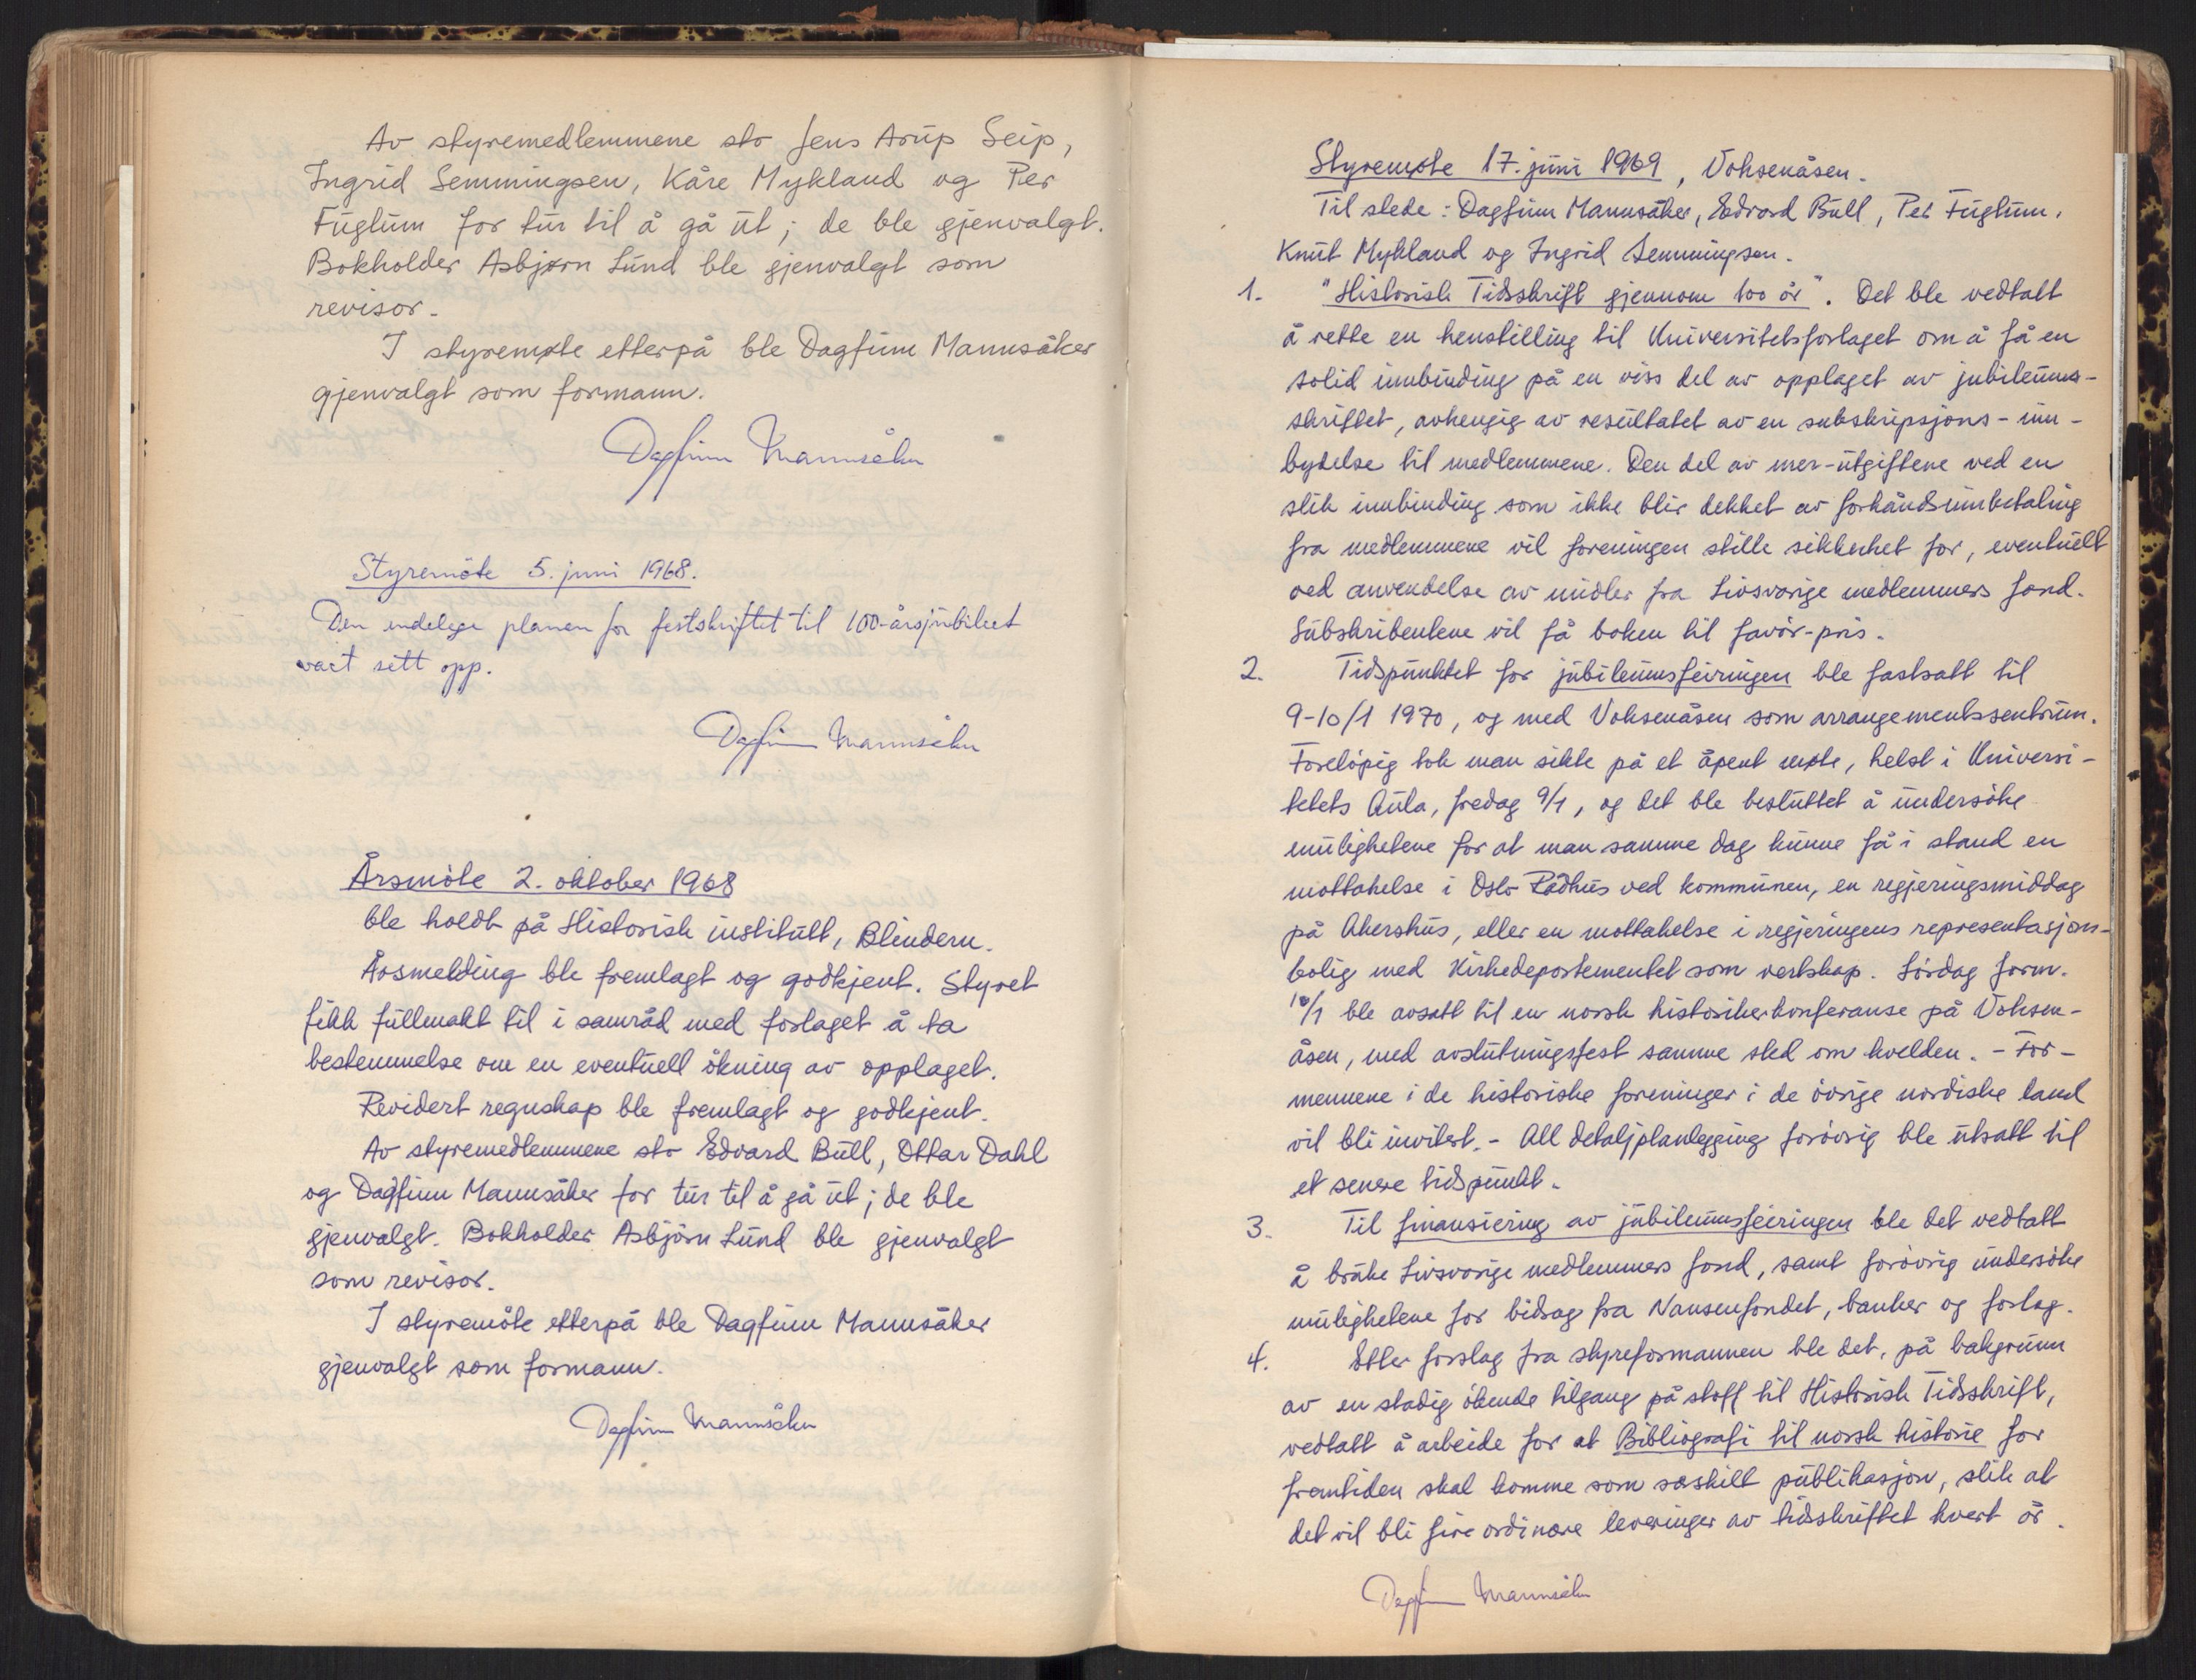 Av styremedlemmene sto Jens Arup Seip,
Ingrid Semmingsen, Kåre Mykland og Per
Fuglum for tur til å gå ut; de ble gjenvalgt.
Bokholder Asbjørn Lund ble gjenvalgt som
revisor.
I styremøte etterpå ble Dagfinn Mannsåker
gjenvalgt som formann.
Dagfinn Mannsåker
Styremöte 5. juni 1968.
Den endelege planen for festskriftet til 100-årsjubileet
vart sett opp.
Dagfinn Mannsåker
Årsmöte 2. oktober 1968
ble holdt på Historisk institutt, Blindern.
Årsmelding ble fremlagt og godkjent. Styret
fikk fullmakt til i samråd med forlaget å ta
bestemmelse om en eventuell ökning av opplaget.
Revidert regnskap ble fremlagt og godkjent.
Av styremedlemmene sto Edvard Bull, Ottar Dahl
og Dagfinn Mannsåker for tur til å gå ut; de ble
gjenvalgt. Bokholder Asbjörn Lund ble gjenvalgt
som revisor.
I styremöte etterpå ble Dagfinn Mannsåker
gjenvalgt som formann.
Dagfinn Mannsåker
Styremøte 17. juni 1969, Voksenåsen.
Til stede: Dagfinn Mannsåker, Edvard Bull, Per Fuglum,
Knut Mykland og Ingrid Semmingsen.
1. "Historisk Tidsskrift gjennom 100 år". Det ble vedtatt
å rette en henstilling til Universitetsforlaget om å få en
solid innbinding på en viss del av opplaget av jubileums-
skriftet, avhengig av resultatet av en subskripsjons-inn-
bydelse til medlemmene. Den del av mer-utgiftene ved en
slik innbinding som ikke blir dekket av forhåndsinnbetaling
fra medlemmene vil foreningen stille sikkerhet for, eventuelt
ved anvendelse av midler fra Livsvarige medlemmers fond.
Subskribentene vil få boken til favör-pris.
2. Tidspunktet for jubileumsfeiringen ble fastsatt til
9-10/1 1970, og med Voksenåsen som arrangementssentrum.
Forelöpig tok man sikte på et åpent møte, helst i Universi-
tetets Aula, fredag 9/1, og det ble besluttet å undersöke
mulighetene for at man samme dag kunne få i stand en
mottakelse i Oslo Rådhus ved kommunen, en regjeringsmiddag
på Akershus, eller en mottakelse i regjeringens representasjons-
bolig med Kirkedepartementet som vertskap. Lördag form.
10/1 ble avsatt til en norsk historikerkonferanse på Voksen-
åsen, med avslutningsfest samme sted om kvelden. - For-
mennene i de historiske foreninger i de övrige nordiske land
vil bli invitert. - All detaljplanlegging forövrig ble utsatt til
et senere tidspunkt.
3. Til finansiering av jubileumsfeiringen ble det vedtatt
å bruke Livsvarige medlemmers fond, samt forövrig undersöke
mulighetene for bidrag fra Nansenfondet, banker og forlag.
4. Etter forslag fra styreformannen ble det, på bakgrunn
av en stadig ökende tilgang på stoff til Historisk Tidsskrift,
vedtatt å arbeide for at Bibliografi til norsk historie for
fremtiden skal komme som særskilt publikasjon, slik at
det vil bli fire ordinære leveringer av tidsskriftet hvert år.
Dagfinn Mannsåker